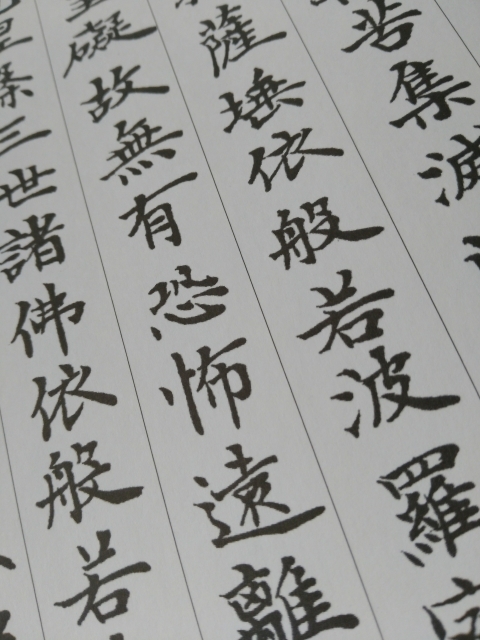 苦集滅
薩埵依般若波羅
礙故無有恐怖遠離
涅槃三世諸佛依般若